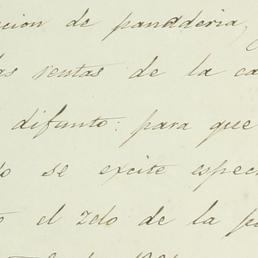 cion de panaderia,
las rentas de la ca
difunto: para que
do se excite espec
el zdo de la p